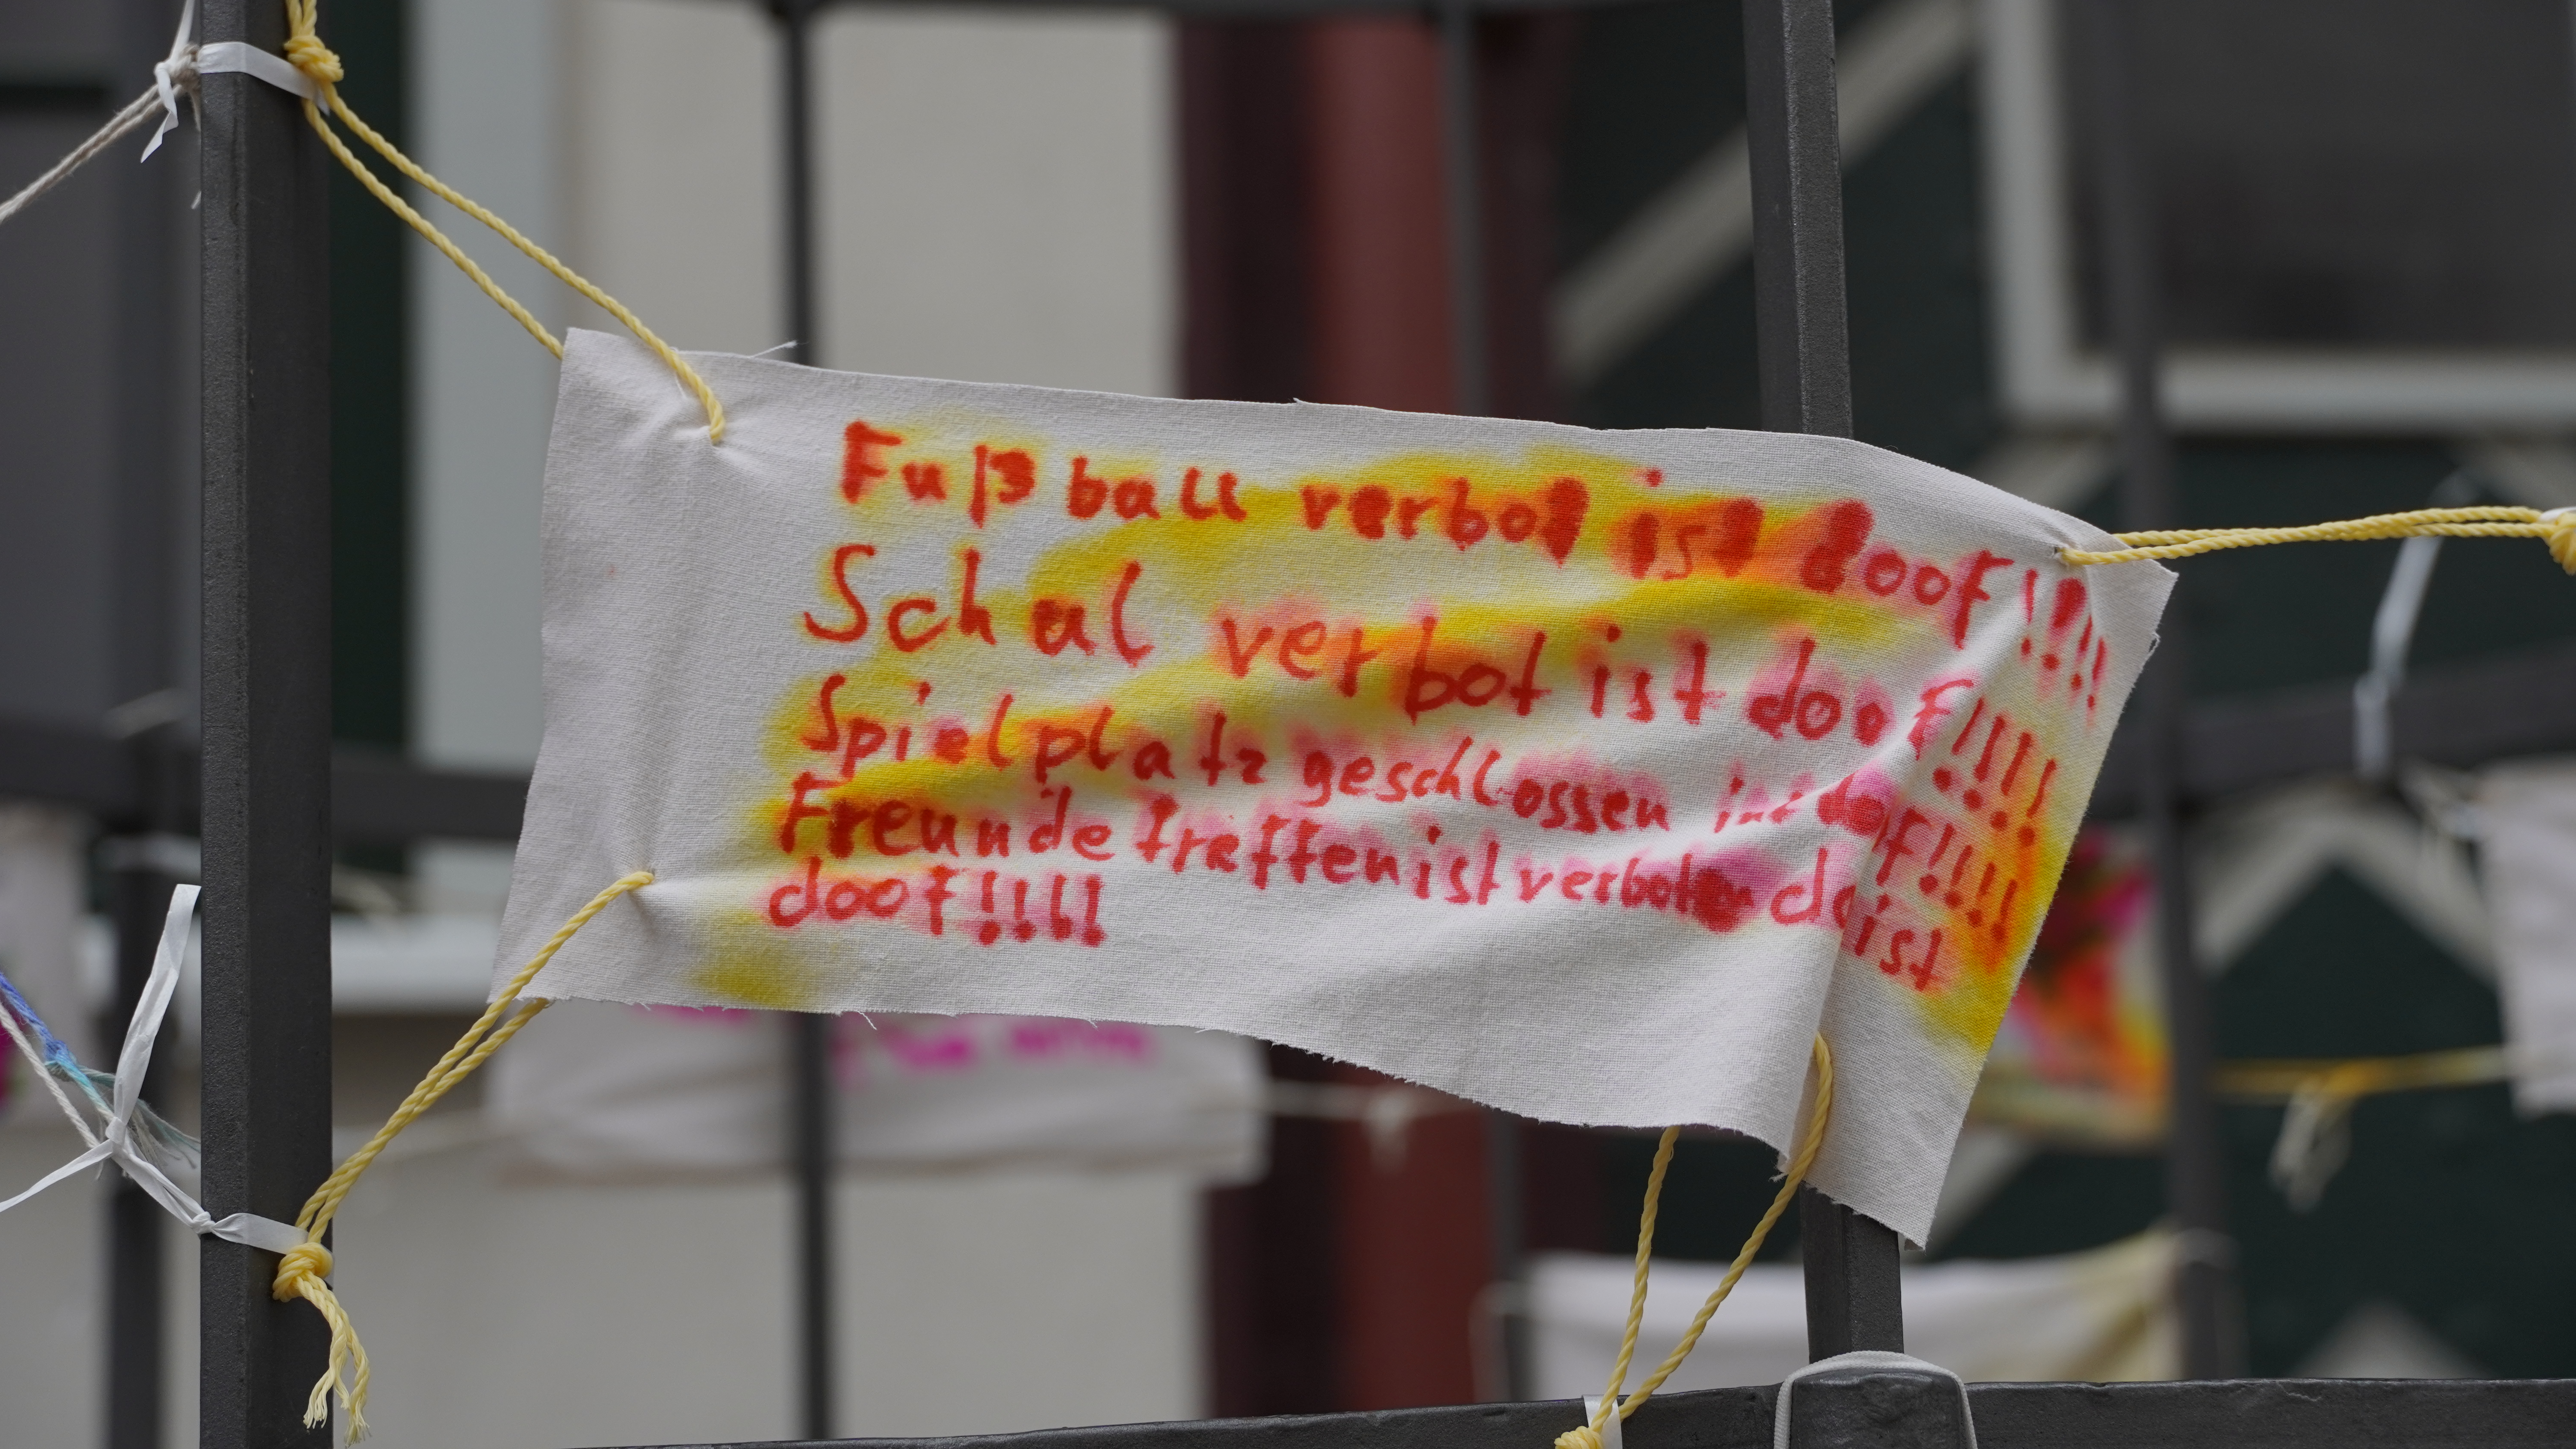 Fußball verbot ist doof!!!!
Schul verbot ist doof!!!!
Spielplatz geschlossen ist doof!!!!
Freunde treffen ist verboten das ist
doof!!!!